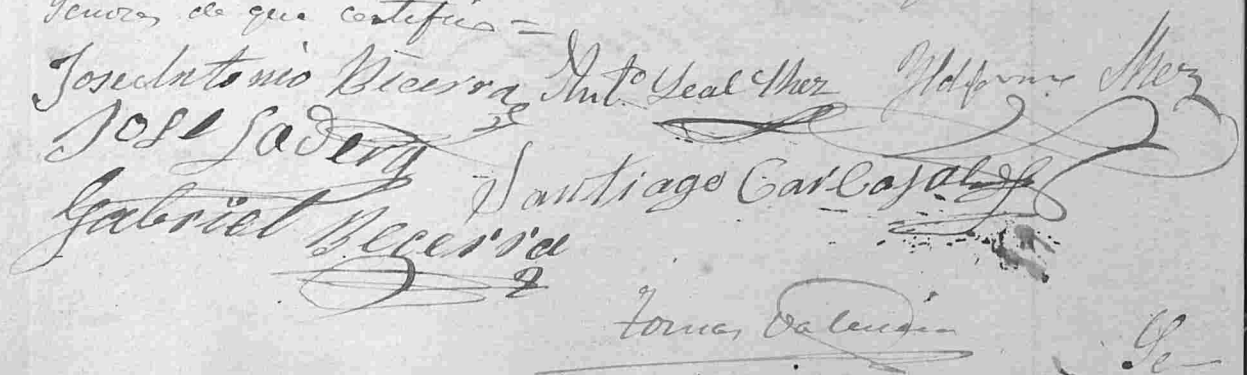 Señores de que certifico =
Jose Antonio Bicerra Antº Leal Shez Yldefonso Shez
Jose Gadeng
Santiago Carbajal
Gabriel Becerra
Tomas Valencia
Se-